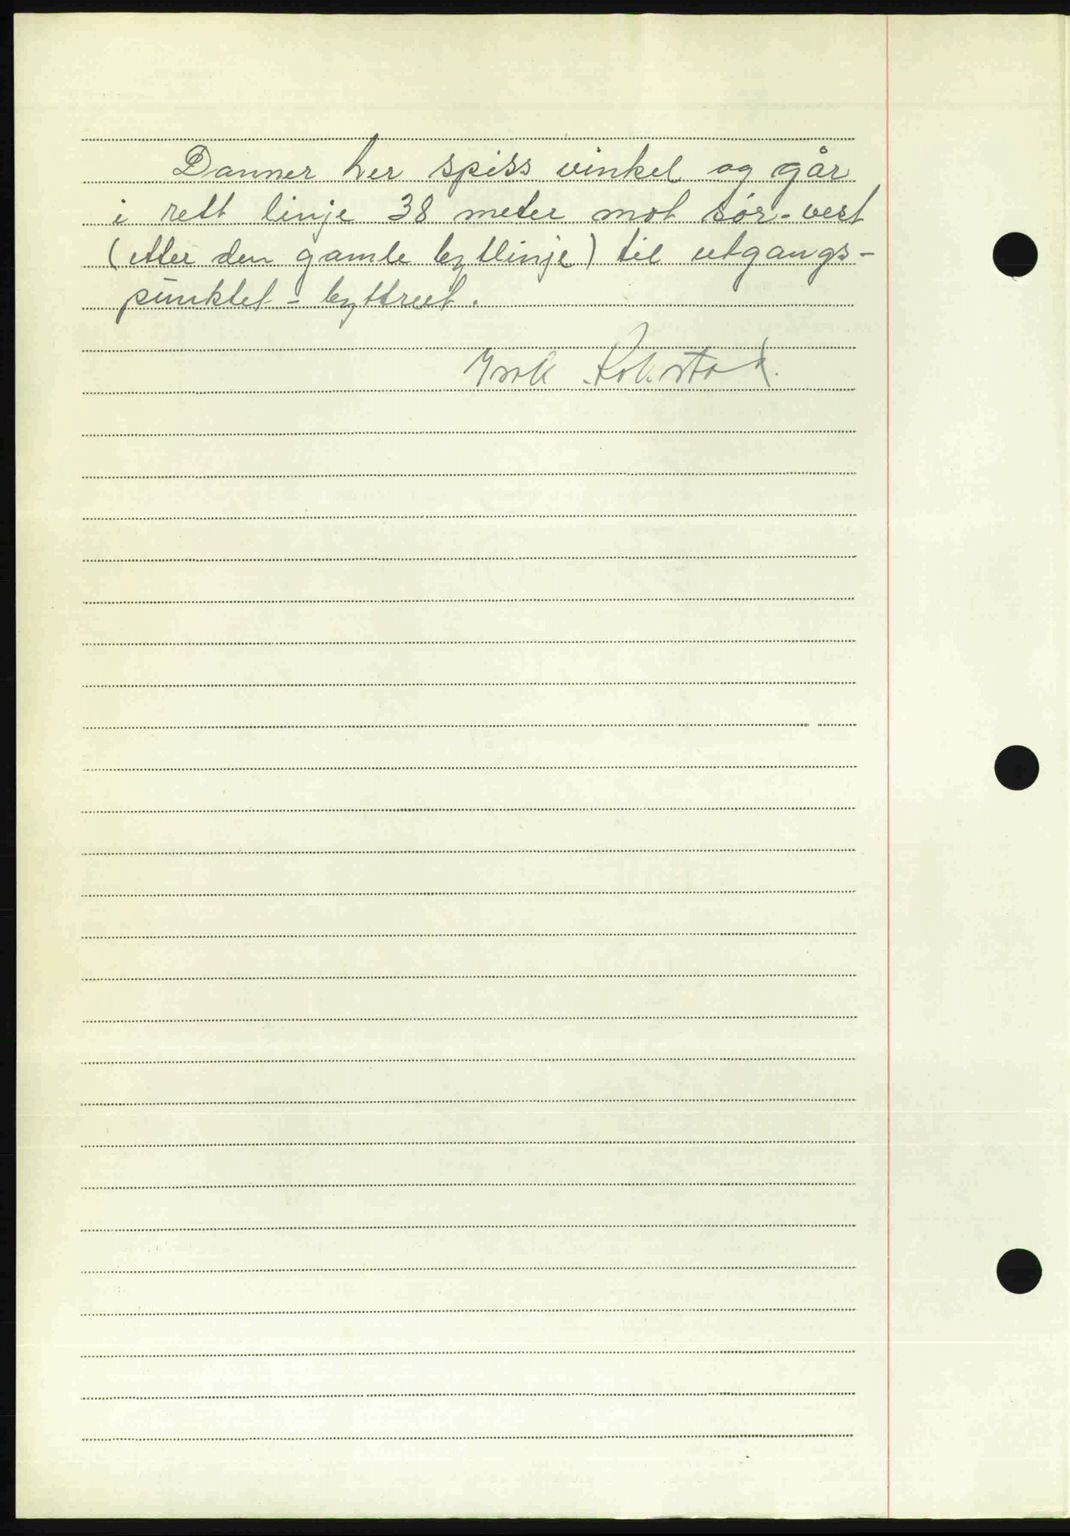 Danner her spiss vinkel og går
i rett linje 38 meter mot sør-vest
(etter den gamle bytlinje) til utgangs-
punktet - byttreet.